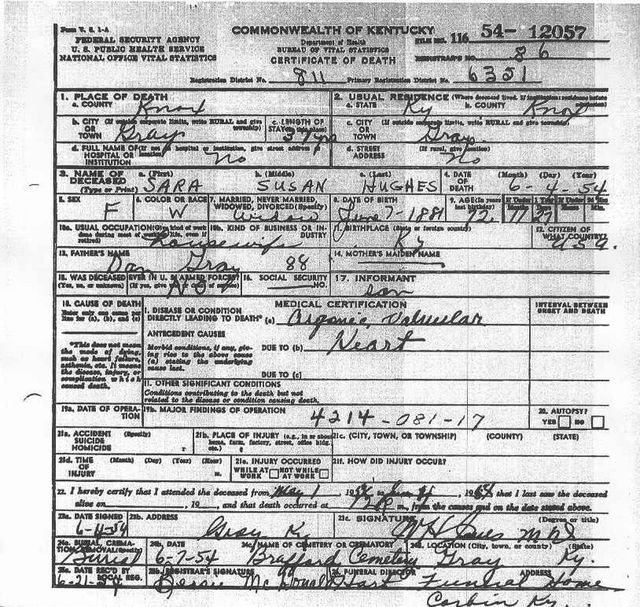 Form V. S. 1-A
COMMONWEALTH OF KENTUCKY
FEDERAL SECURITY AGENCY
U. S. PUBLIC HEALTH SERVICE
NATIONAL OFFICE VITAL STATISTICS
Department of Health
BUREAU OF VITAL STATISTICS
CERTIFICATE OF DEATH
FILE NO. 116 54- 12057
REGISTRAR'S NO. 86
Registration District No. 811 Primary Registration District No. 6351
1. PLACE OF DEATH
a. COUNTY Knox
2. USUAL RESIDENCE (Where deceased lived. If institution: residence before
a. STATE Ky b. COUNTY Knox
b. CITY (If outside corporate limits, write RURAL and give township)
OR TOWN Gray
c. LENGTH OF STAY (in this place)
c. CITY (If outside corporate limits, write RURAL and give township)
OR TOWN Gray
d. FULL NAME OF (If not in hospital or institution, give street address or location)
HOSPITAL OR INSTITUTION No
d. STREET ADDRESS (If rural, give location) No
3. NAME OF DECEASED (Type or Print)
a. (First) SARA b. (Middle) SUSAN c. (Last) HUGHES
4. DATE OF DEATH (Month) (Day) (Year) 6-4-54
5. SEX F
6. COLOR OR RACE W
7. MARRIED, NEVER MARRIED, WIDOWED, DIVORCED (Specify) Widow
8. DATE OF BIRTH June 7-1881
9. AGE (In years last birthday) 72 11 27
10a. USUAL OCCUPATION (Give kind of work done during most of working life, even if retired) Housewife
10b. KIND OF BUSINESS OR INDUSTRY
11. BIRTHPLACE (State or foreign country) Ky
12. CITIZEN OF WHAT COUNTRY? USA
13. FATHER'S NAME Dan Gray 88
14. MOTHER'S MAIDEN NAME
15. WAS DECEASED EVER IN U. S. ARMED FORCES?
(Yes, no, or unknown) (If yes, give war or dates of service) NO
16. SOCIAL SECURITY NO.
17. INFORMANT son
18. CAUSE OF DEATH
Enter only one cause per line for (a), (b), and (c)
MEDICAL CERTIFICATION
INTERVAL BETWEEN ONSET AND DEATH
I. DISEASE OR CONDITION
DIRECTLY LEADING TO DEATH* (a) Organic Valvular
*This does not mean the mode of dying, such as heart failure, asthenia, etc. It means the disease, injury, or complication which caused death.
ANTECEDENT CAUSES
Morbid conditions, if any, giving rise to the above cause (a) stating the underlying cause last.
DUE TO (b) Heart
DUE TO (c)
II. OTHER SIGNIFICANT CONDITIONS
Conditions contributing to the death but not related to the disease or condition causing death.
19a. DATE OF OPERATION
19b. MAJOR FINDINGS OF OPERATION
4214-081-17
20. AUTOPSY?
YES NO
21a. ACCIDENT SUICIDE HOMICIDE (Specify)
21b. PLACE OF INJURY (e.g., in or about home, farm, factory, street, office bldg., etc.)
21c. (CITY, TOWN, OR TOWNSHIP) (COUNTY) (STATE)
21d. TIME OF INJURY (Month) (Day) (Year) (Hour)
21e. INJURY OCCURRED
WHILE AT WORK NOT WHILE AT WORK
21f. HOW DID INJURY OCCUR?
22. I hereby certify that I attended the deceased from May 1 1954 to June 4 1954 that I last saw the deceased
alive on 19 and that death occurred at m., from the causes and on the date stated above.
23a. DATE SIGNED 6-4-54
23b. ADDRESS Gray Ky
23c. SIGNATURE (Degree or title) MD
24a. BURIAL, CREMATION, REMOVAL (Specify) Burial
6-7-54
24c. NAME OF CEMETERY OR CREMATORY Brafford Cemetery
24d. LOCATION (City, town, or county) (State) Gray Ky.
25a. DATE REC'D BY LOCAL REG. 6-21-54
25b. REGISTRAR'S SIGNATURE Bessie McDonald
FUNERAL DIRECTOR ADDRESS Hart Funeral Home
Corbin Ky.